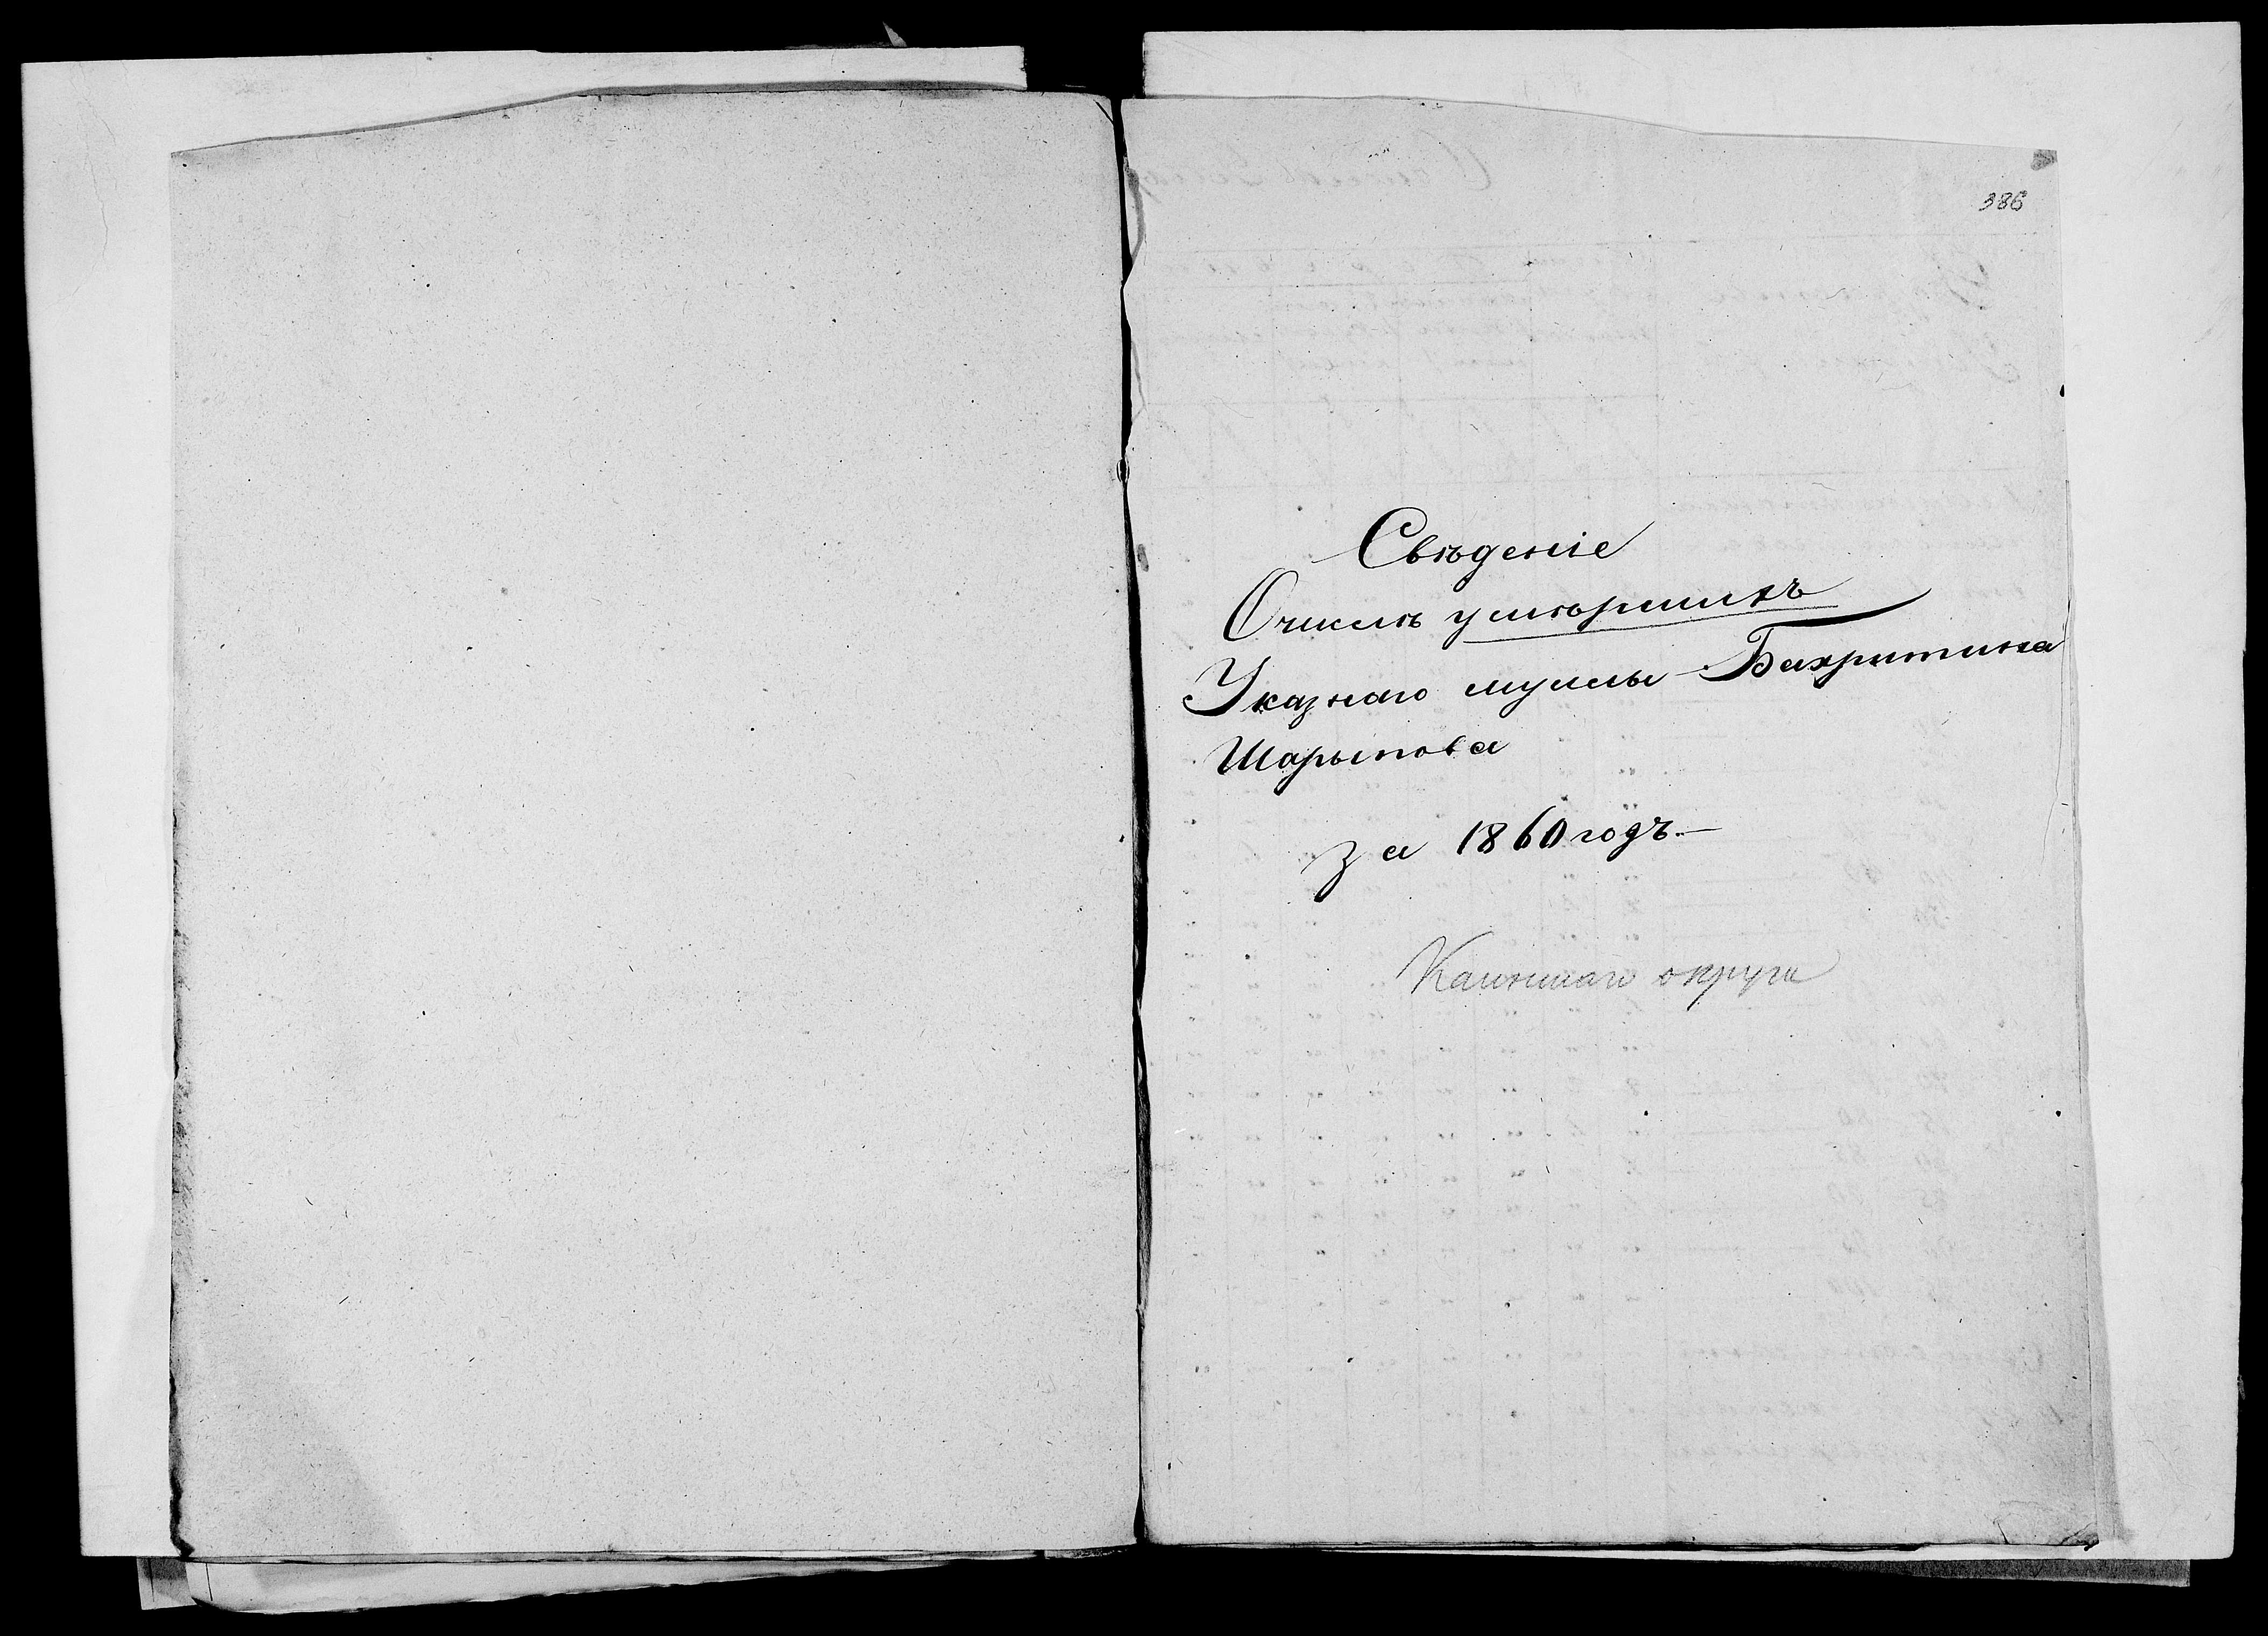 386
Свѣденіе
Очислѣ умѣршихъ
Указнаго муллы Бахритина
Шарыпова
за 1860 годъ.—
округа